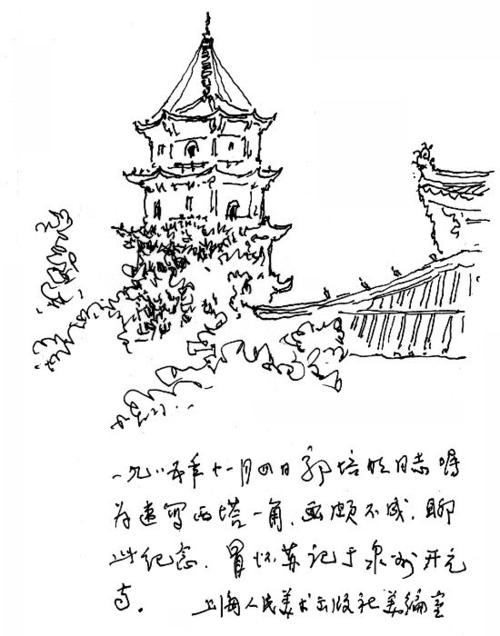 一九八五年十一月四日郭培明同志嘱
为速写西塔一角，画颇不成，聊
此纪念。冒怀苏记于泉州开元
寺。 上海人民美术出版社美编室